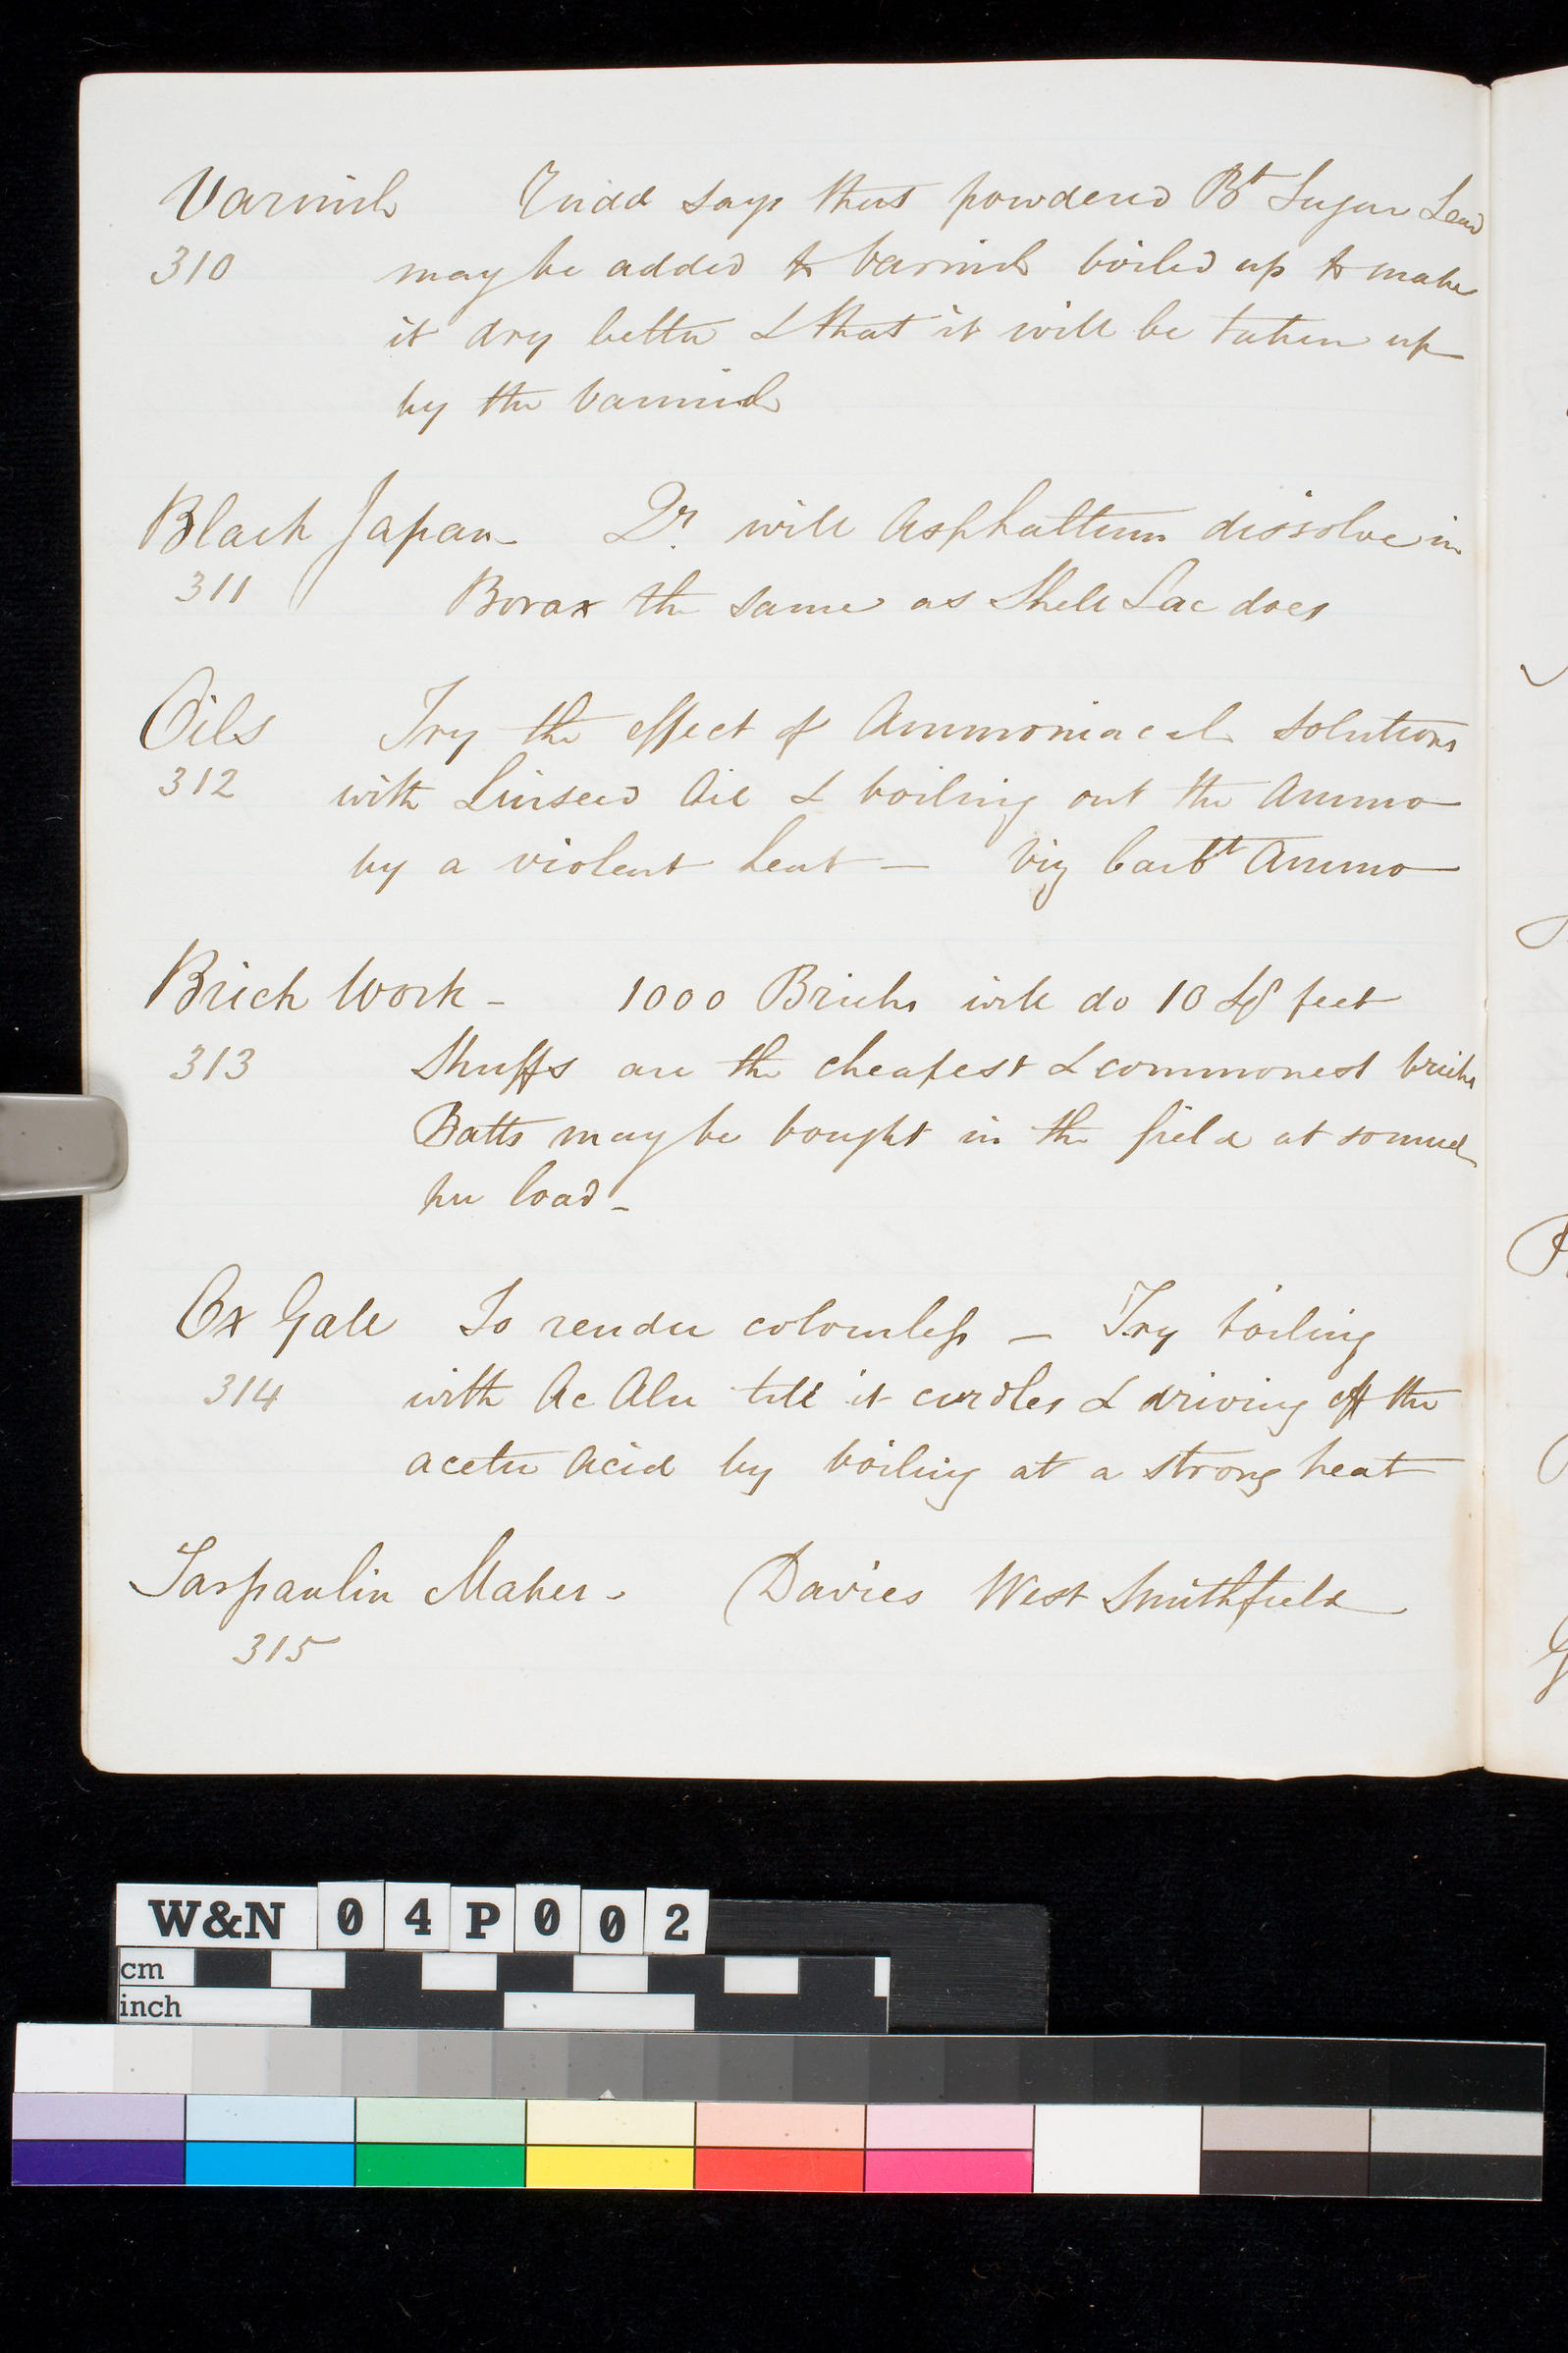 Varnish says that powdered Bt Sugar Lead
310 may be added to Varnish boiled up to make
it dry better & that it will be taken up
by the Varnish
Black Japan - Qr. will Asphaltum dissolve in
311 Borax the same as Shell Lac does
Oils Try the effect of Ammoniacal solutions
312 with Linseed Oil & boiling out the Ammo
by a violent heat — Viz Carbt Ammo
Brick Work - 1000 Bricks will do 10 Sq feet
313 Shuffs are the cheapest & commonest bricks
Batts may be bought in the field at so much
per load -
Ox Gall To render colourless — Try boiling
314 with Ac Alu till it curdles & driving off the
acetic Acid by boiling at a strong heat
Tarpaulin Maker - Davies West Smithfield
315
W&N 04P002
cm
inch